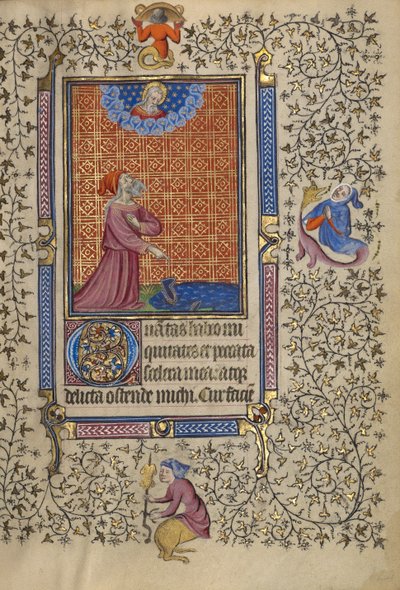 Quantas habeo ini
quitates et peccata
scelera mea atqꝫ
delicta ostende michi. Cur facie